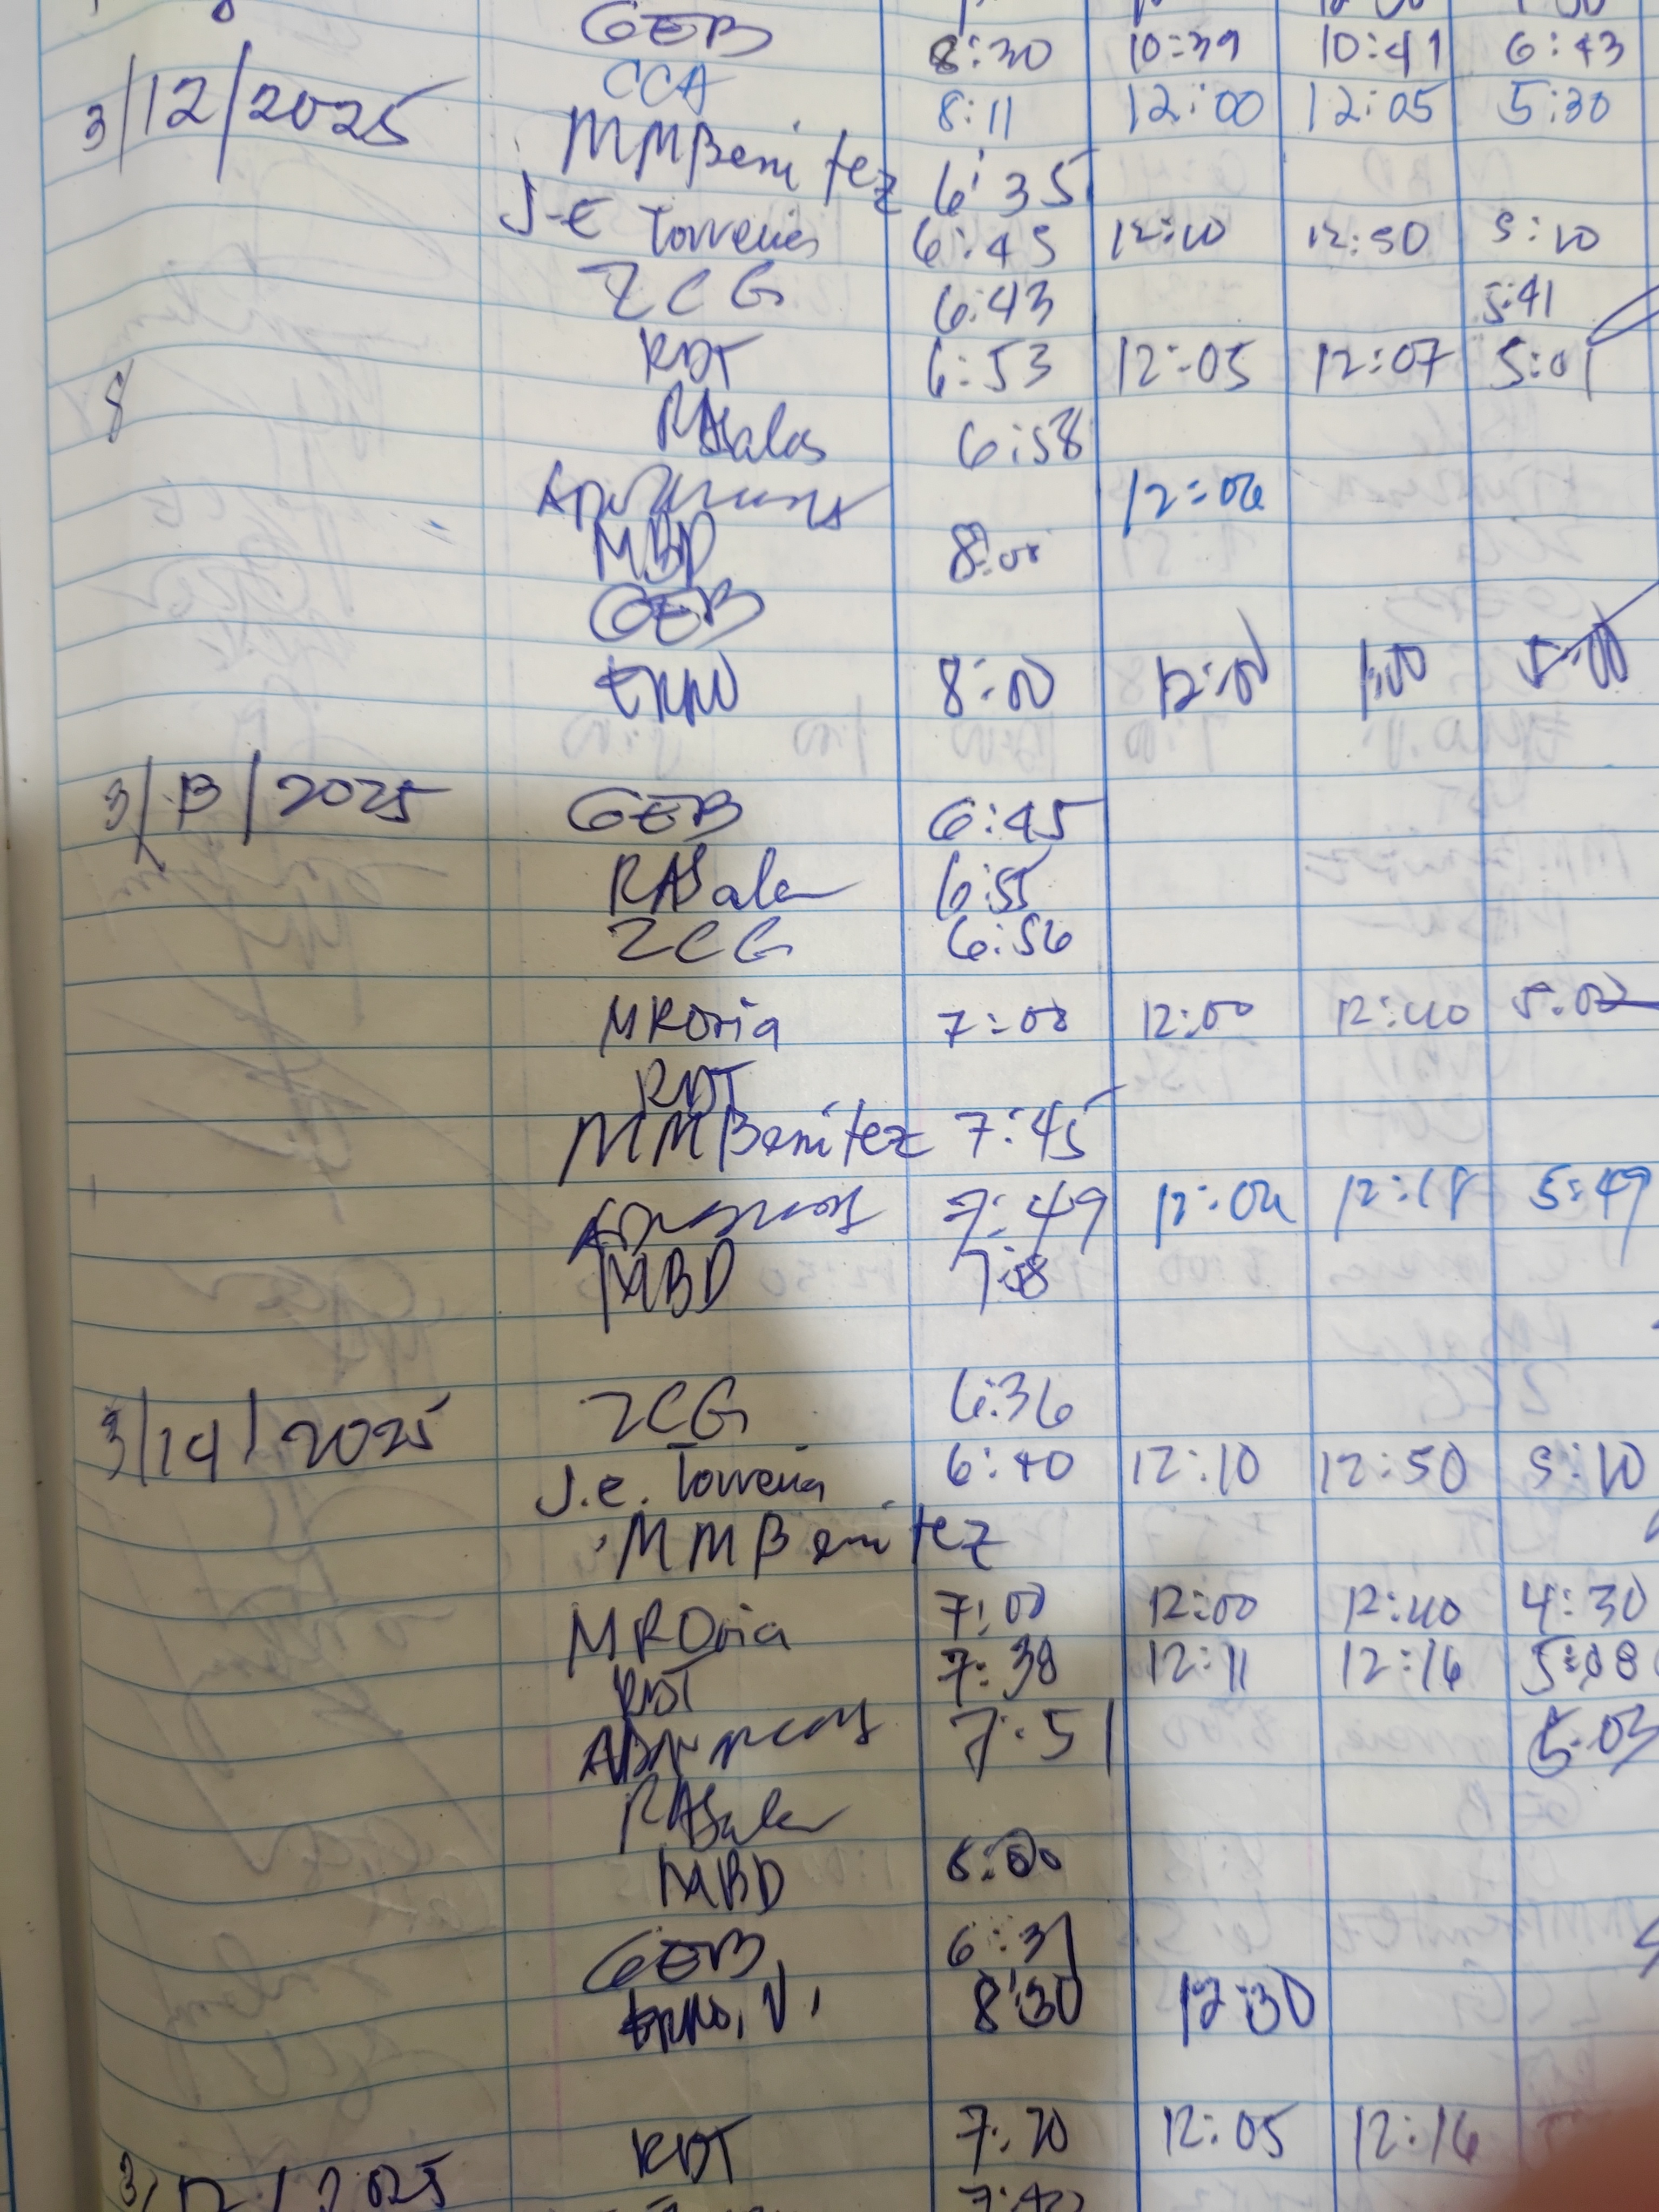 GEB 8:30 10:39 10:41 6:43
3/12/2025 CCA 8:11 12:00 12:05 5:30
MMBenitez 6:35
J.E Torrena 6:45 12:10 12:50 5:10
ZCG 6:43 5:41
RDT 6:53 12:05 12:07 5:01
8
RASalas 6:58
12:06
MBD 8:00
GEB
8:00 12:00 1:00 5:00
3/13/2025 GEB 6:45
RASalas 6:55
ZCG 6:56
MROria 7:00 12:00 12:40 5:00
RDT
MMBenitez 7:45
7:49 12:04 12:18 5:49
MBD 7:58
3/14/2025 ZCG 6:36
J.e. Torrena 6:40 12:10 12:50 5:10
MMBenitez
MROria 7:00 12:00 12:40 4:30
RDT 7:38 12:11 12:16 5:08
7:51 5:03
RASalas
MBD 8:00
GEB 6:31
8:30 12:30
RDT 7:20 12:05 12:16
3/17/2025